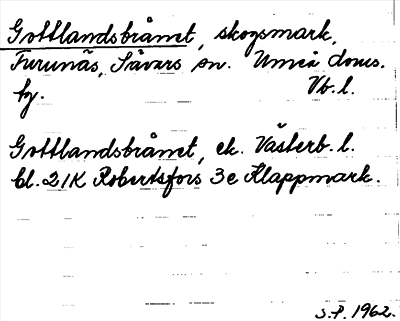 Gottlandsbrånet, skogsmark,
Furunäs, Sävars sn. Umeå doms.
by. Vb. l.
Gottlandsbrånet, ek. Västerb. l.
bl. 21K Robertsfors 3e Klappmark.
S.P. 1962.